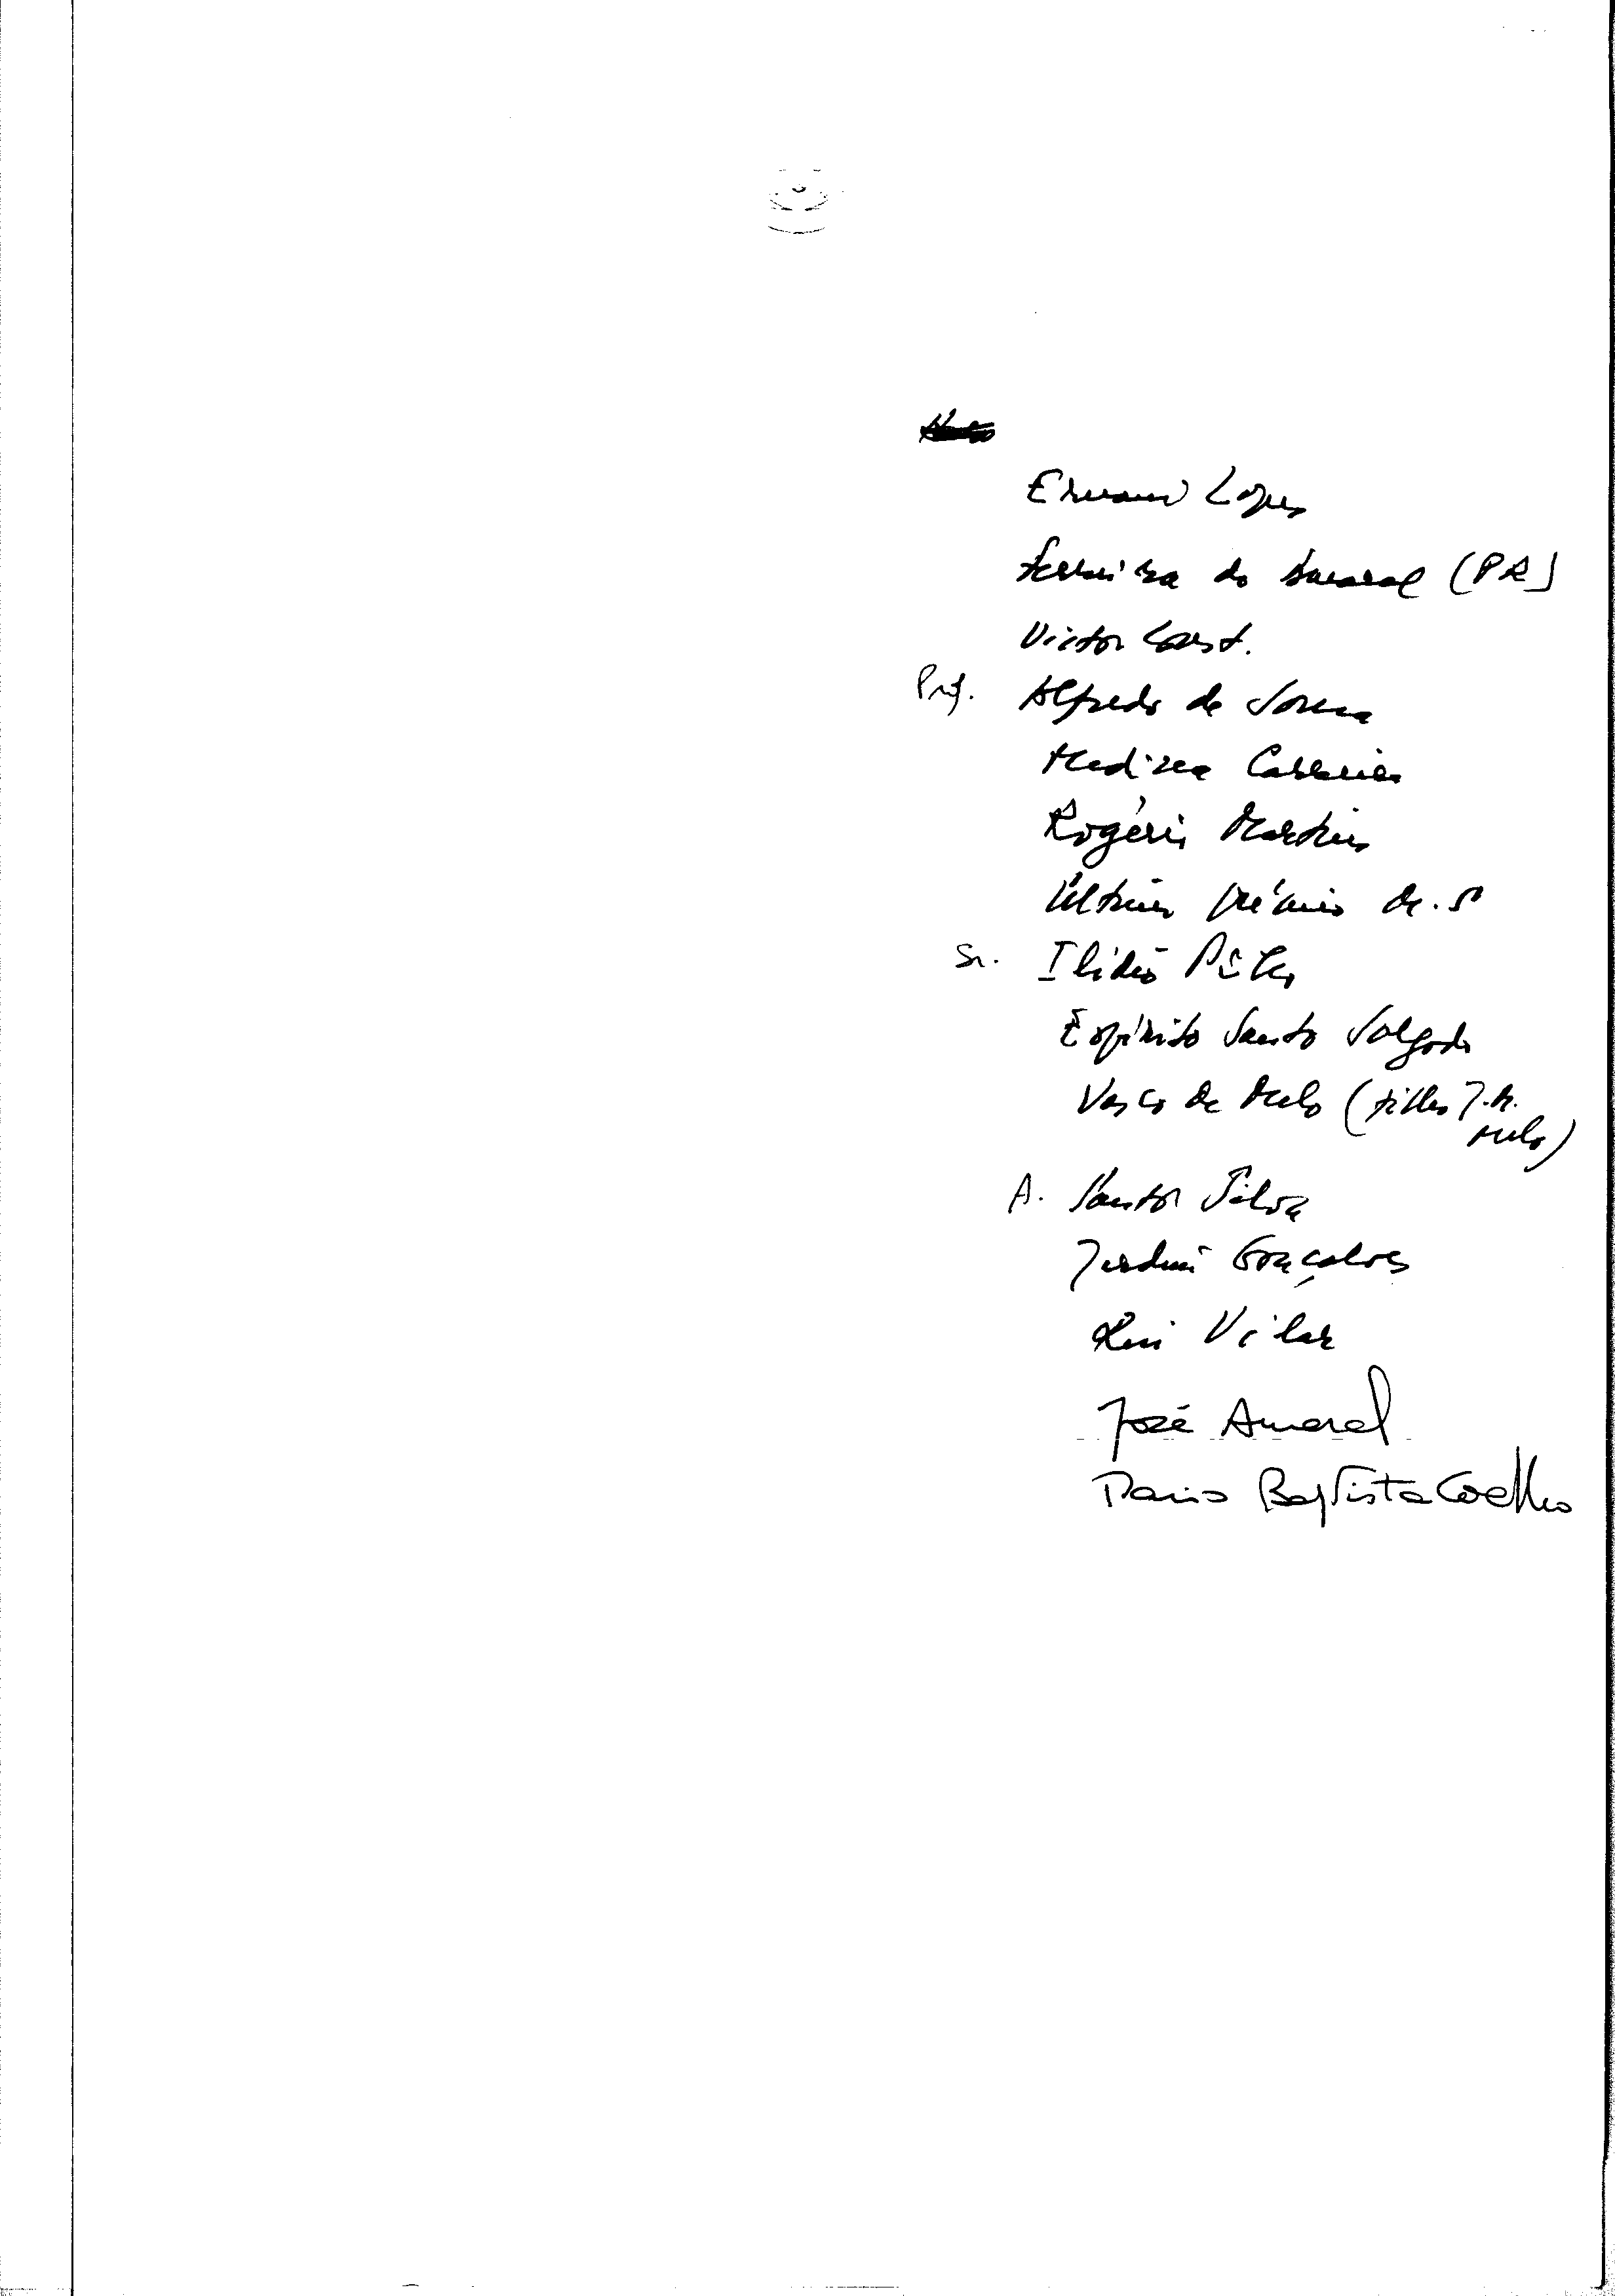 Ernani Lopes
Ferreira do Amaral (PR)
Victor Const.
Prof. Alfredo de Sousa
Medina Carreira
Rogério Martins
Último prémio
Sr. Ilídio Pinho
Espírito Santo Salgado
Vasco de Melo (filho J.M.
Melo)
A. Santos Silva
Jardim Gonçalves
Rui Vilar
José Amaral
Dario Baptista Coelho